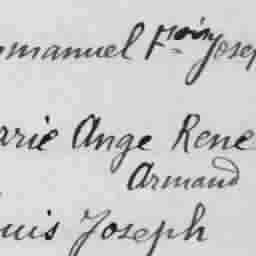 mmanuel Fçois Josep
arie Ange Rene
Armand
uis Joseph